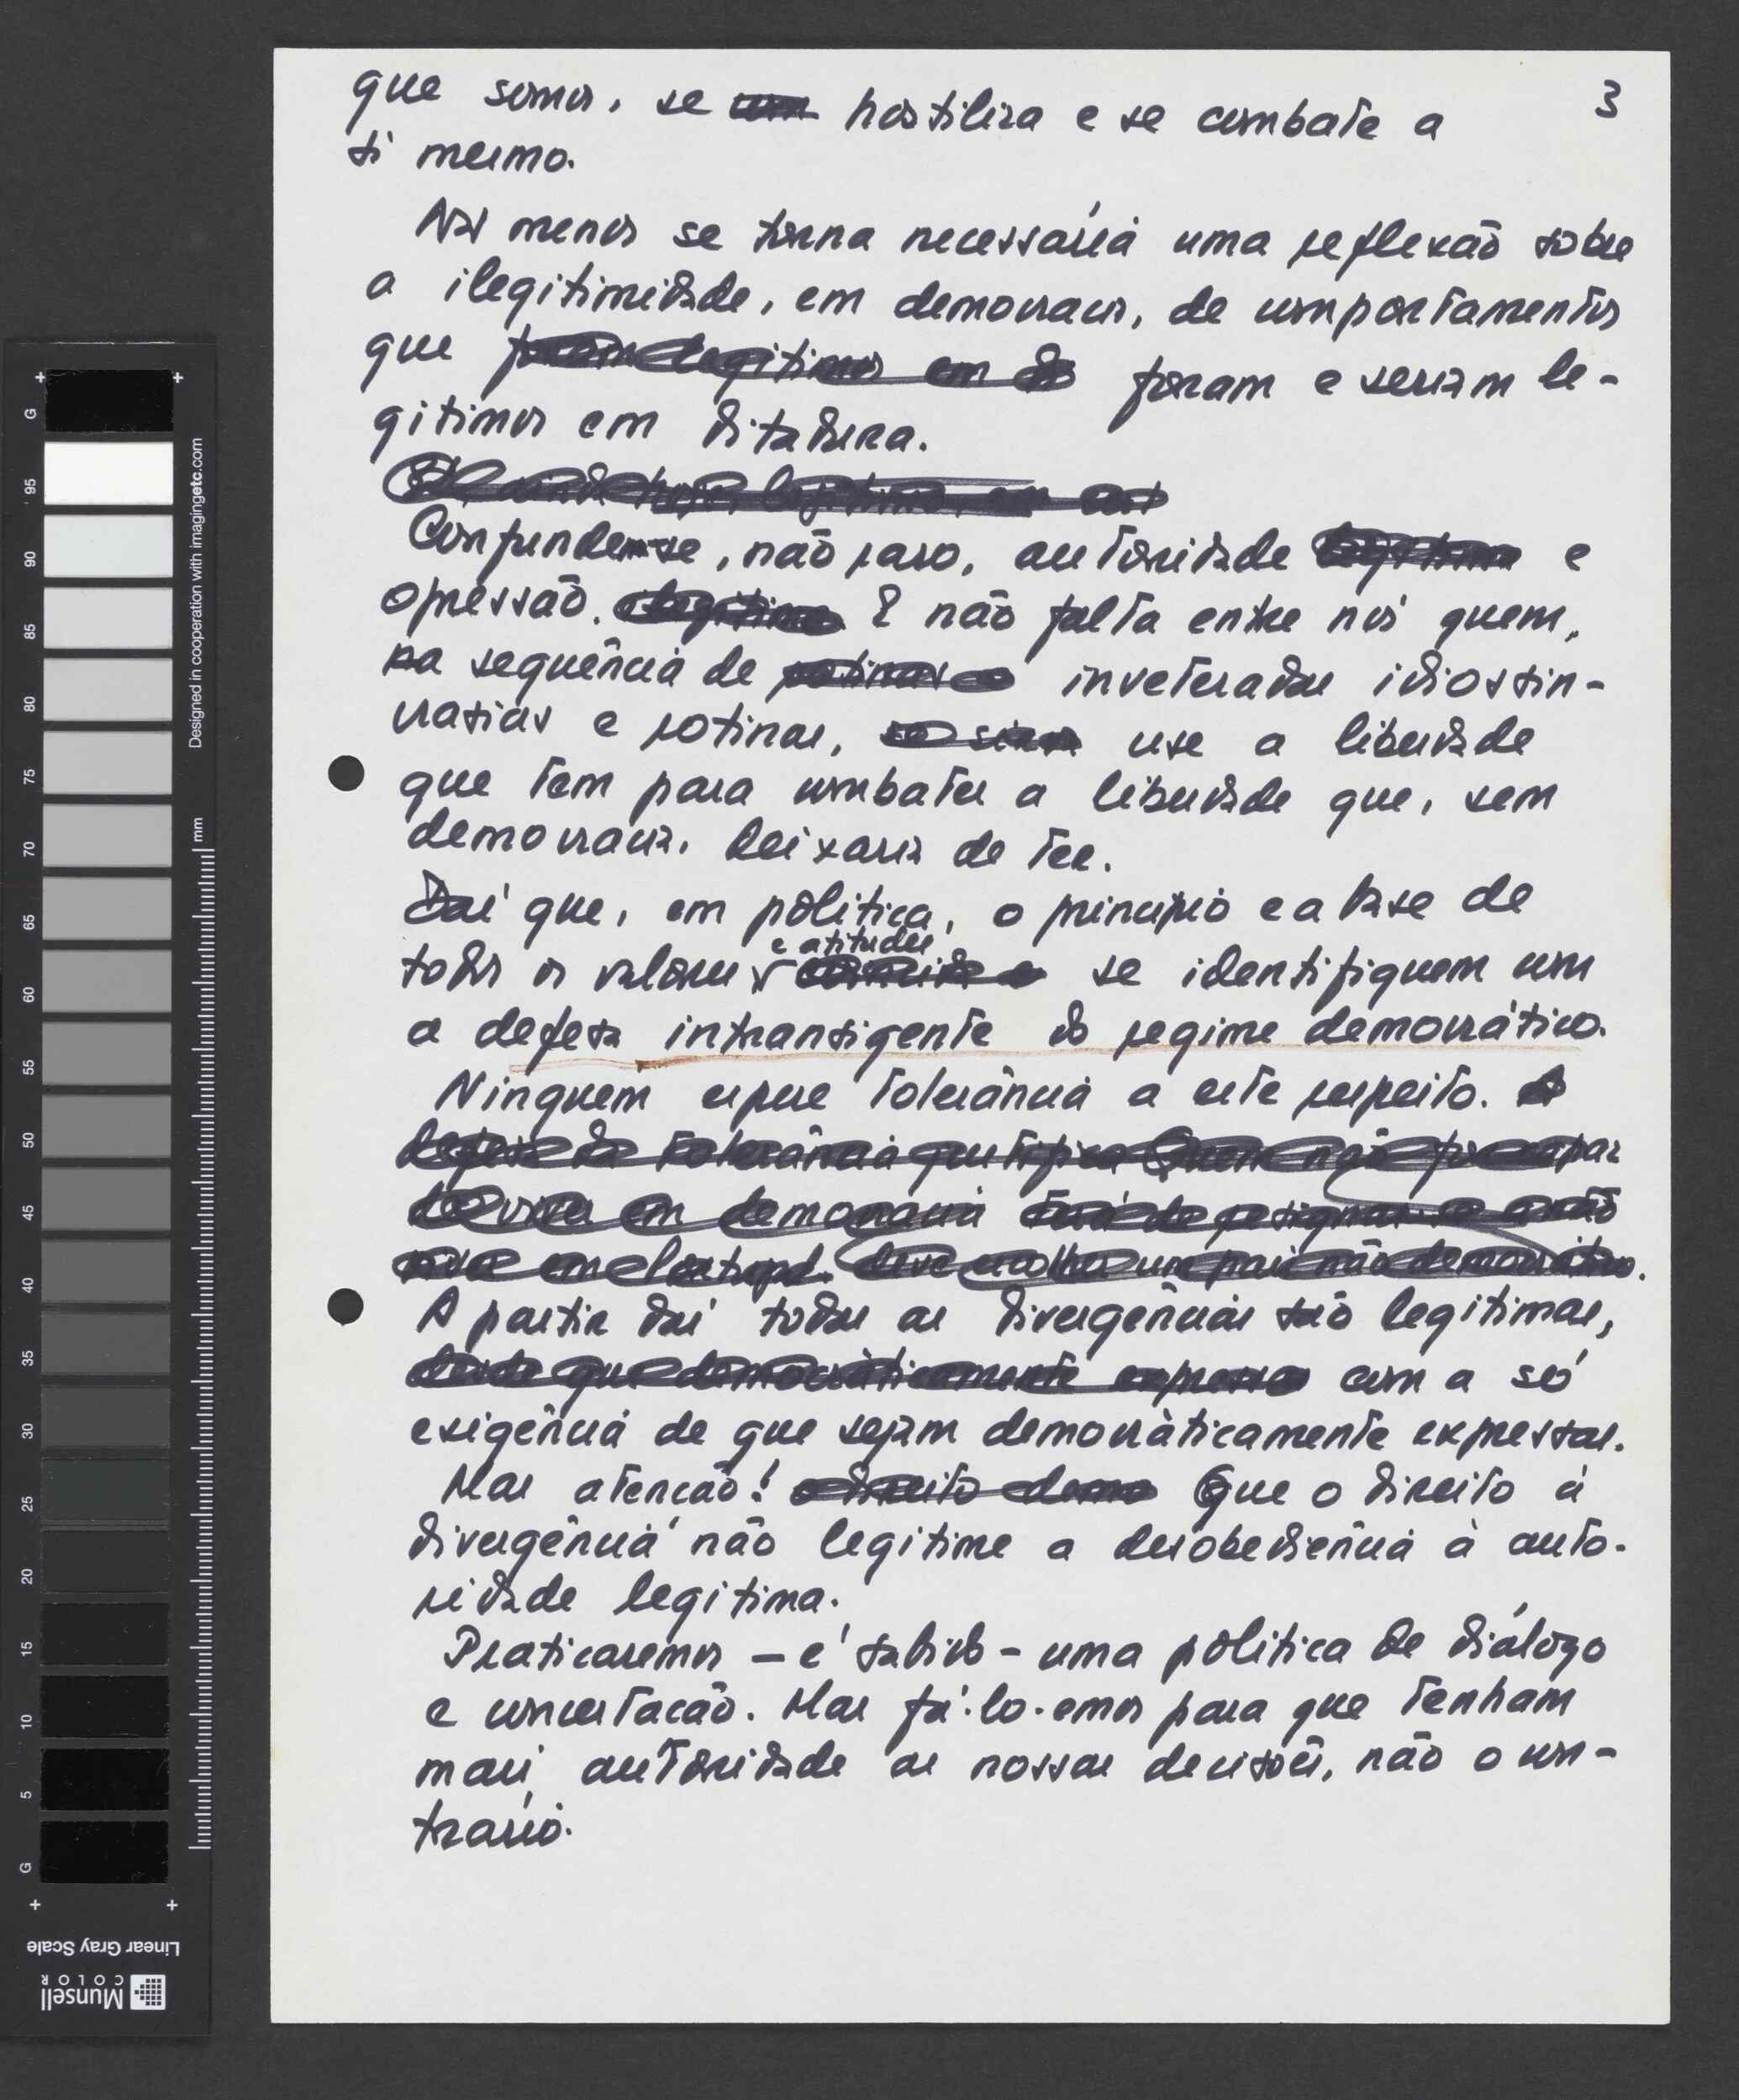 3
que somos, se hostiliza e se combate a
si mesmo.
Não menos se torna necessária uma reflexão sobre
a ilegitimidade, em democracia, de comportamentos
que foram e seriam le-
gitimos em ditadura.
Confundem-se, não raro, autoridade e
opressão. E não falta entre nós quem,
na sequência de inveteradas idiossin-
crasias e rotinas, use a liberdade
que tem para combater a liberdade que, sem
democracia, deixaria de ter.
Daí que, em política, o princípio e a base de
e atitudes
todos os valores se identifiquem com
a defesa intransigente do regime democrático.
Ninguem espere tolerância a este respeito.
A partir daí todas as divergências são legitimas,
com a só
exigência de que sejam democràticamente expressas.
Mas atenção! Que o direito à
divergência não legitime a desobediência à auto-
ridade legitima.
Praticaremos — é sabido — uma política de diálogo
e concertação. Mas fá-lo-emos para que tenham
mais autoridade as nossas decisões, não o con-
trário.
Designed in cooperation with imagingetc.com
mm
G
95
90
85
80
75
70
65
60
55
50
45
40
35
30
25
20
15
10
5
G
Linear Gray Scale
Munsell
COLOR